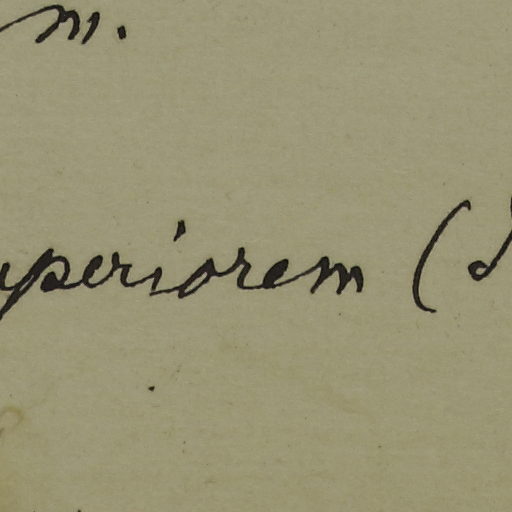 m.
uperiorem (